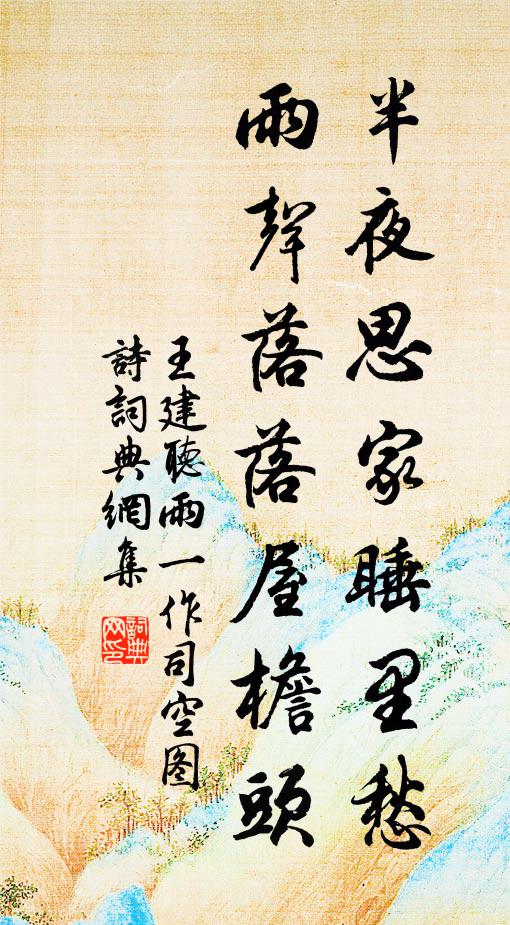 半夜思家睡里愁
雨聲落落屋檐頭
王建聽雨一作司空图
詩詞典網集
詞典
网印